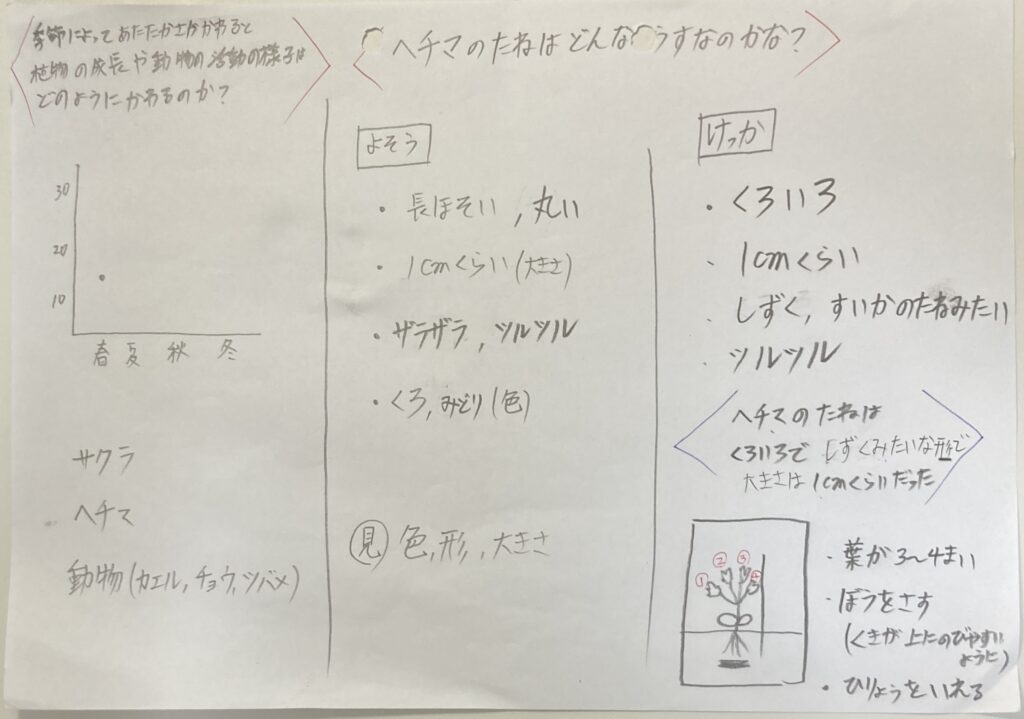 季節によってあたたかさがかわると
植物の成長や動物の活動の様子は
どのようにかわるのか?
30
20
10
春 夏 秋 冬
サクラ
ヘチマ
動物(カエル,チョウ,ツバメ)
ヘチマのたねはどんなようすなのかな?
よそう
・長ほそい,丸い
・1cmくらい(大きさ)
・ザラザラ,ツルツル
・くろ,みどり(色)
見 色,形,大きさ
けっか
・くろいろ
・1cmくらい
・しずく,すいかのたねみたい
・ツルツル
ヘチマのたねは
くろいろでしずくみたいな形で
大きさは1cmくらいだった
① ② ③ ④
・葉が3〜4まい
・ぼうをさす
(くきが上にのびやすい
ように)
・ひりょうをいれる